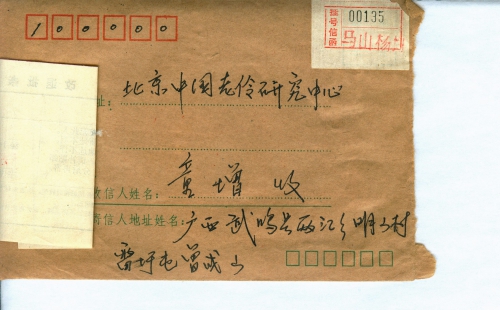 100000
挂号信函
00135
马山
址:北京中国老龄研究中心
收信人姓名:童增收
寄信人地址姓名:广西武鸣县两江乡明山村
雷圩屯曾成山